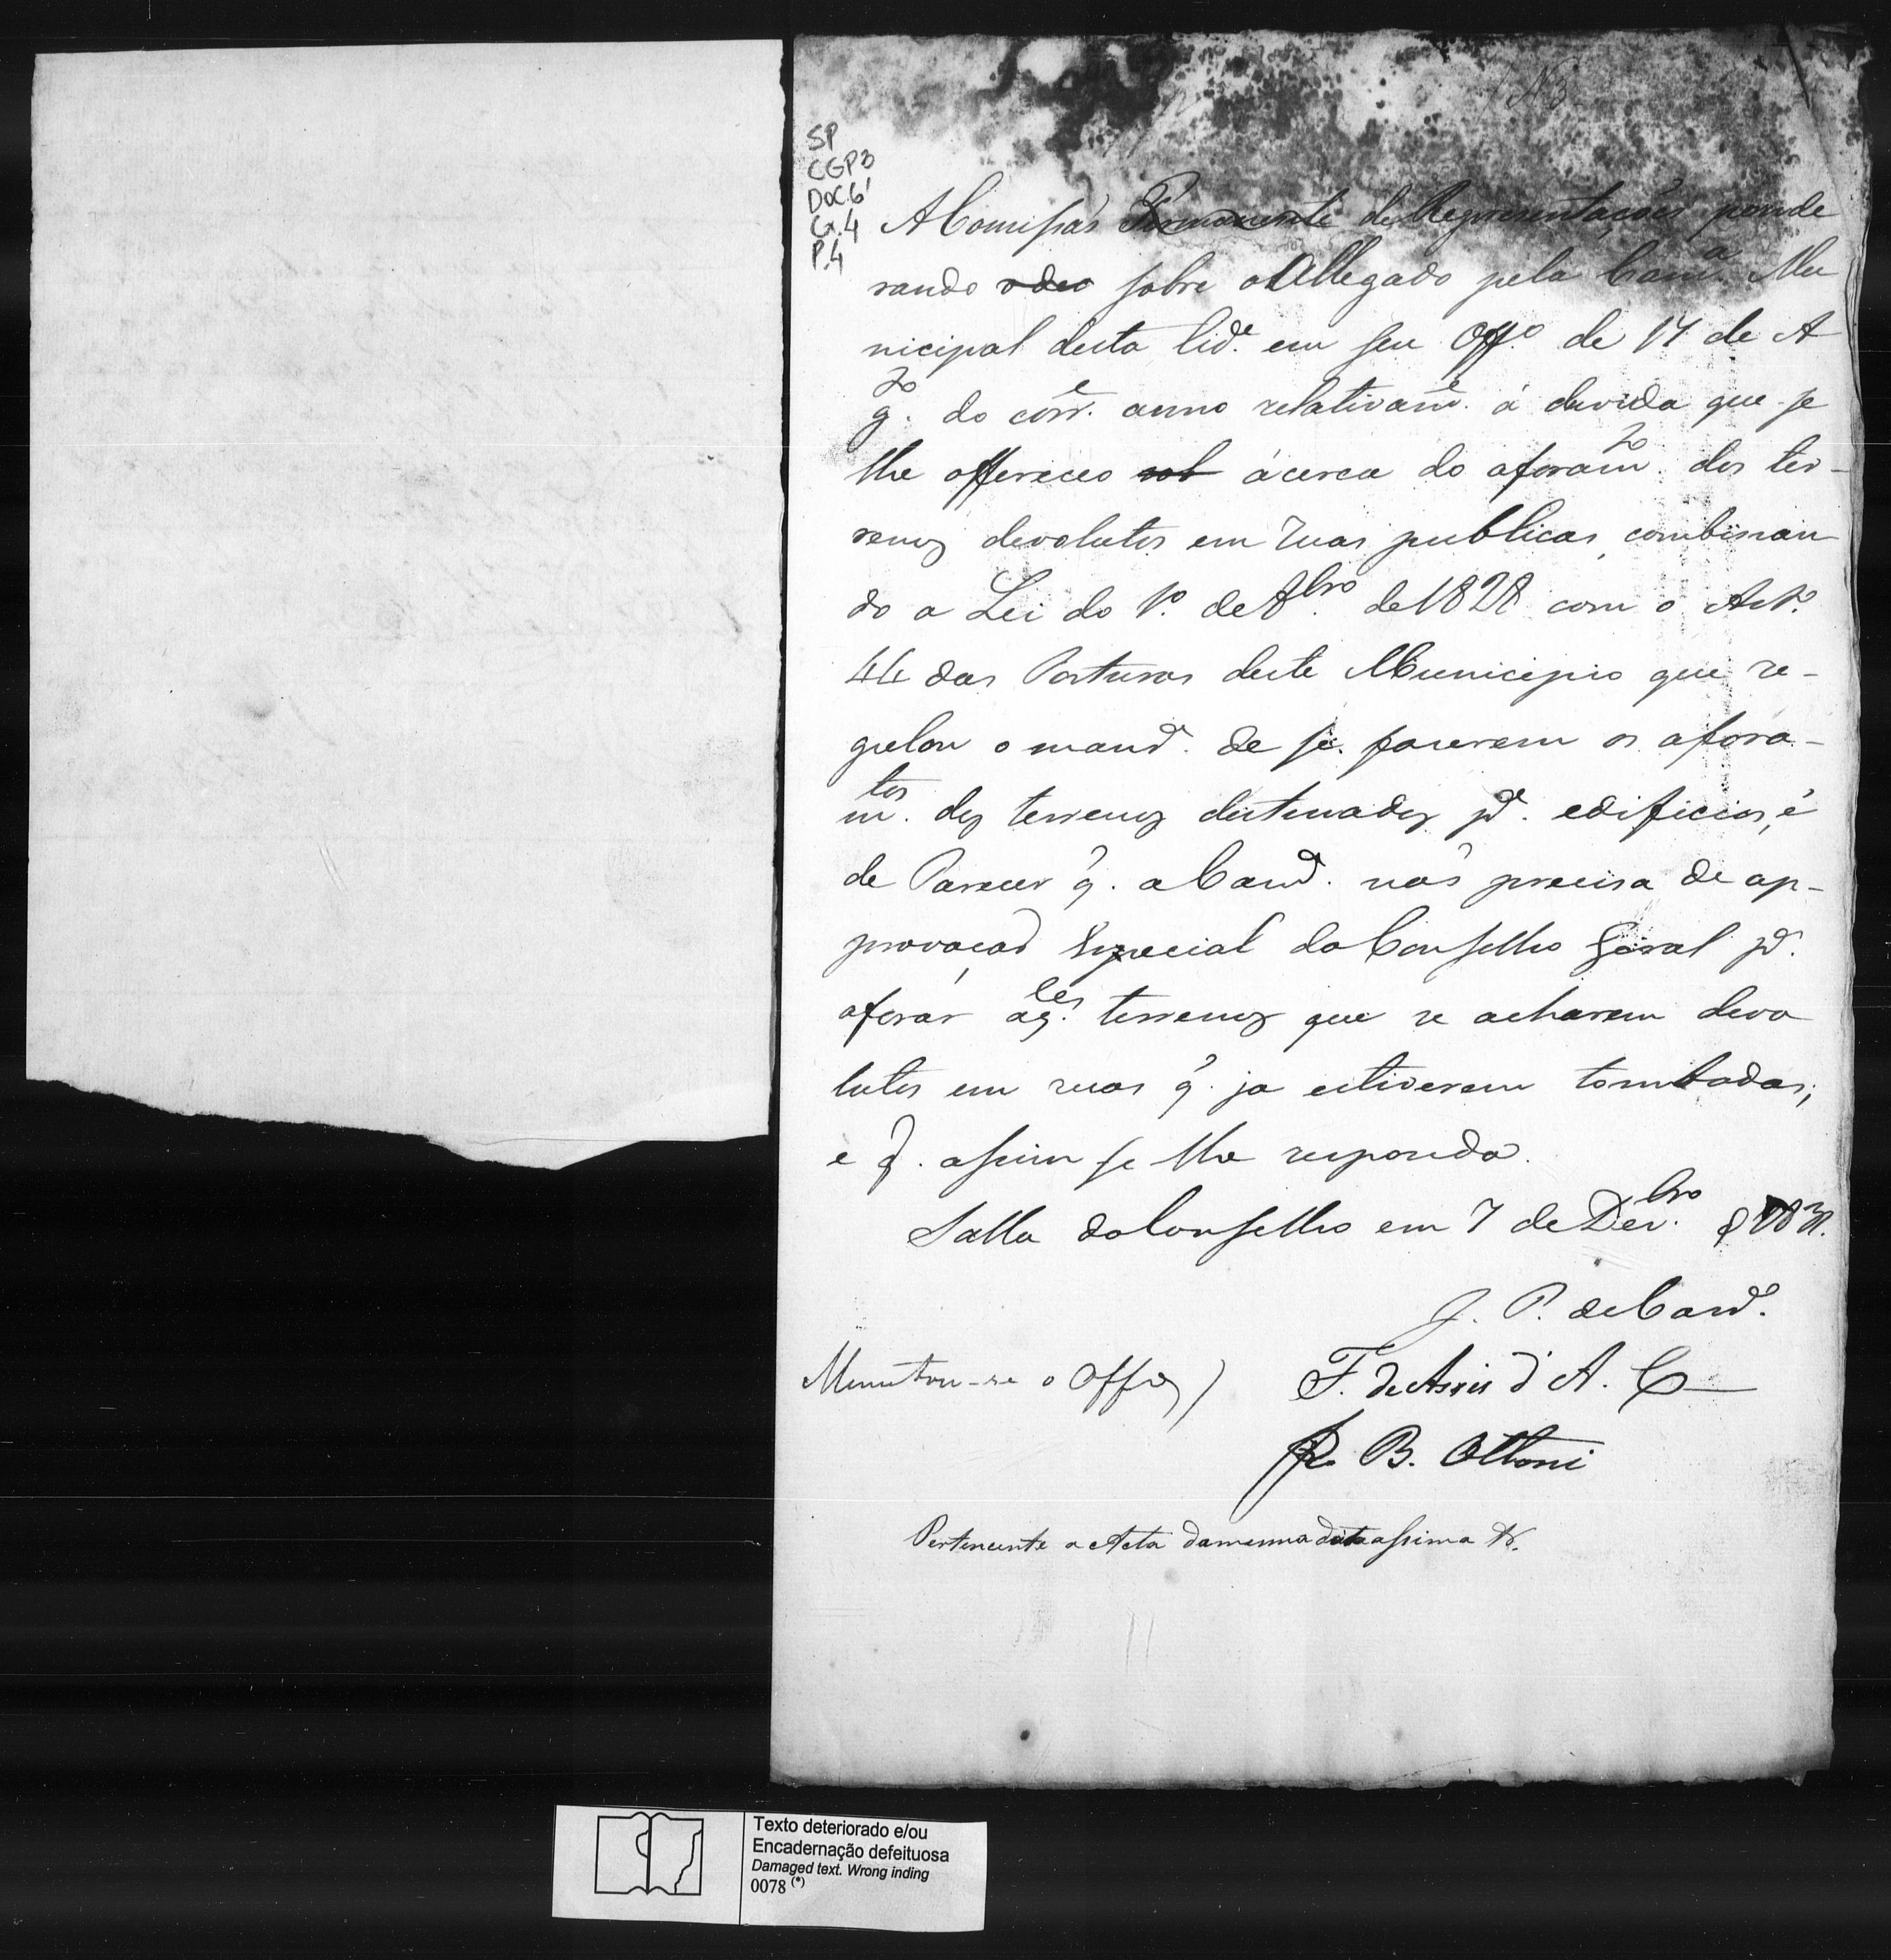 N 3
SP
CGP3
DOC.6
Cx.4
P.4
A Comissaõ Permanente de Representaçoẽs, ponde
rando o deo sobre o Allegado pela Camª. Mu
nicipal desta Cidᵉ. em seu Offº. de 17 de A
gᵗᵒ. do corrᵉ. anno relativamᵉ. á duvida que se
lhe offereceo sob ácerca do aforamᵗᵒ. dos ter-
renos devolutos em ruas publicas, combinan
do a Lei do 1º. de 8bro. de 1828 com o Artº.
44 das Posturas deste Municipio que re-
gulou o manrª. de se fazerem os afora-
mᵗᵒˢ. dos terrenos destinados pª. edificios, é
de Parecer q̃. a Camrª. naõ precisa de ap-
provaçaõ Especial do Conselho Geral pª.
aforar aqˡᵉˢ. terrenos que se acharem devo
lutos em ruas q̃. ja estiverem tombadas;
e q̃. assim se lhe responda.
Salla do Conselho em 7 de Dezbro. de 1831.
J. P. de Carvº.
Minutou-se o Offº) F. de Assis d'A. C
R. B. Ottoni
Pertencente a Acta da mesma data assima
Texto deteriorado e/ou
Encadernação defeituosa
Damaged text. Wrong inding
0078 (*)